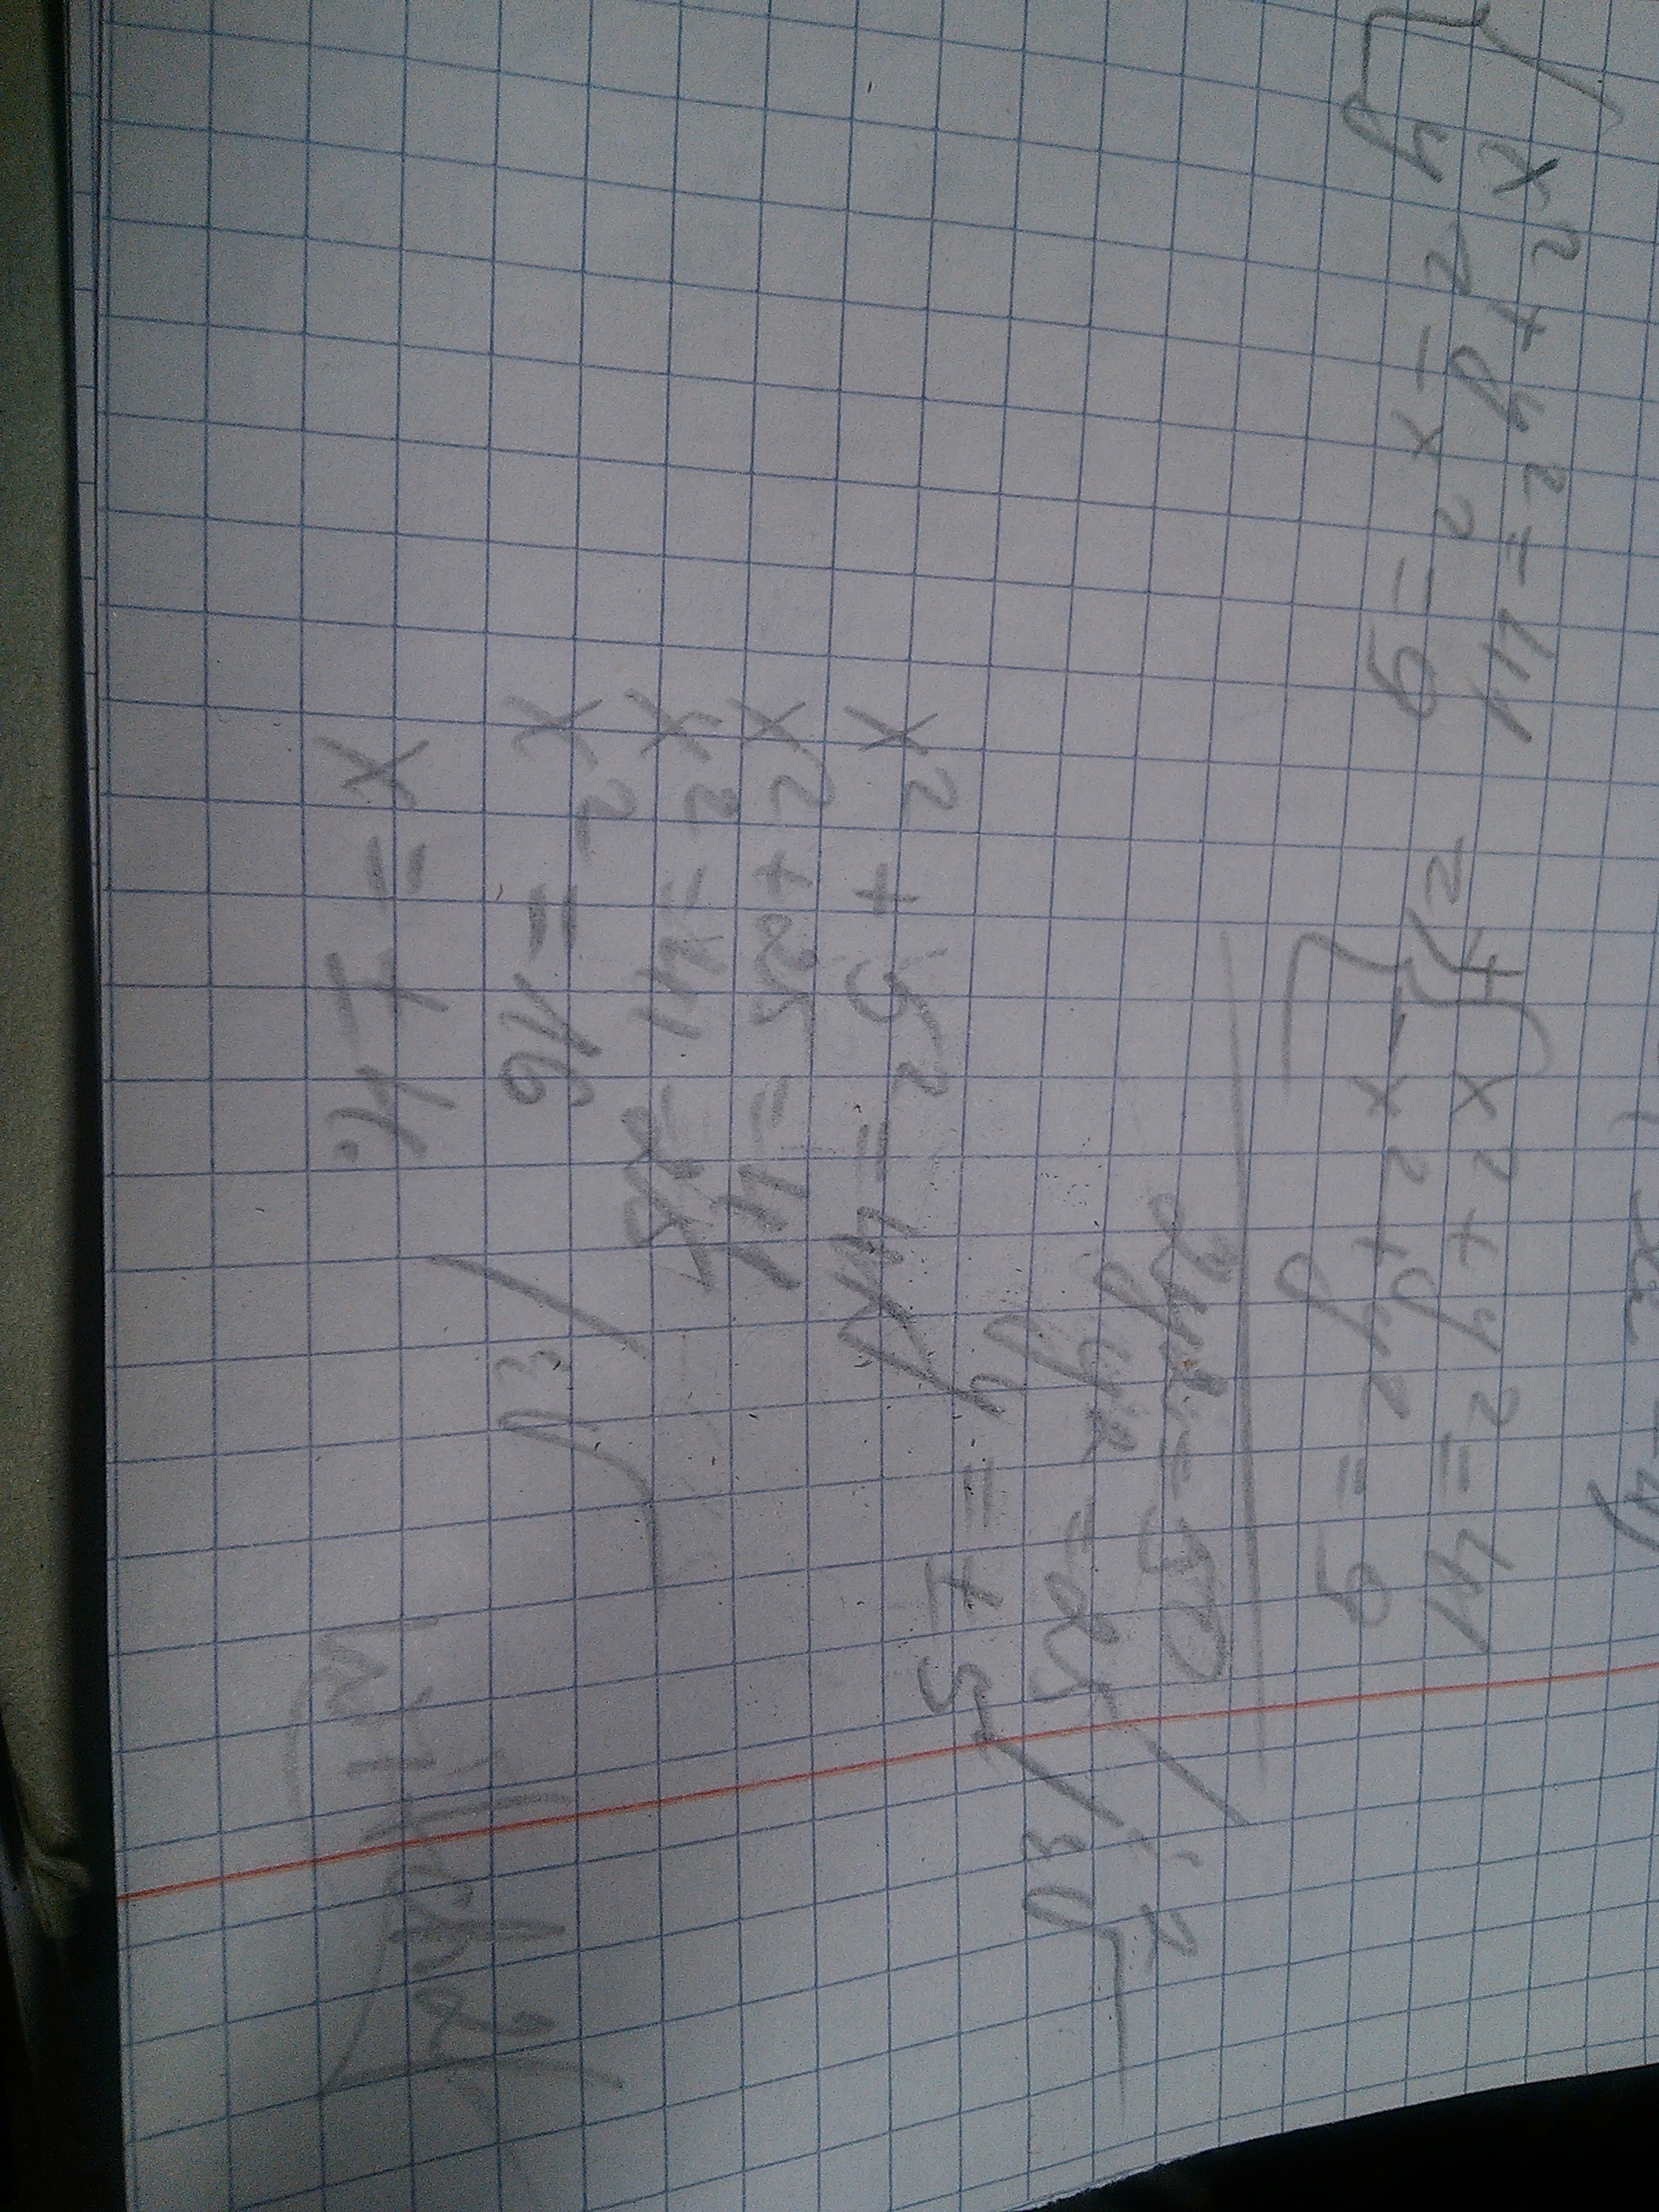 x² + y² = 41
y² - x² = 9
x² + y² = 41
-x² + y² = 9
2y² = 50 / : 2
y² = 25 / √
y = ± 5
x² + 5² = 41
x² + 25 = 41
x² = 41 - 25
x² = 16 / √
x = ± 4.